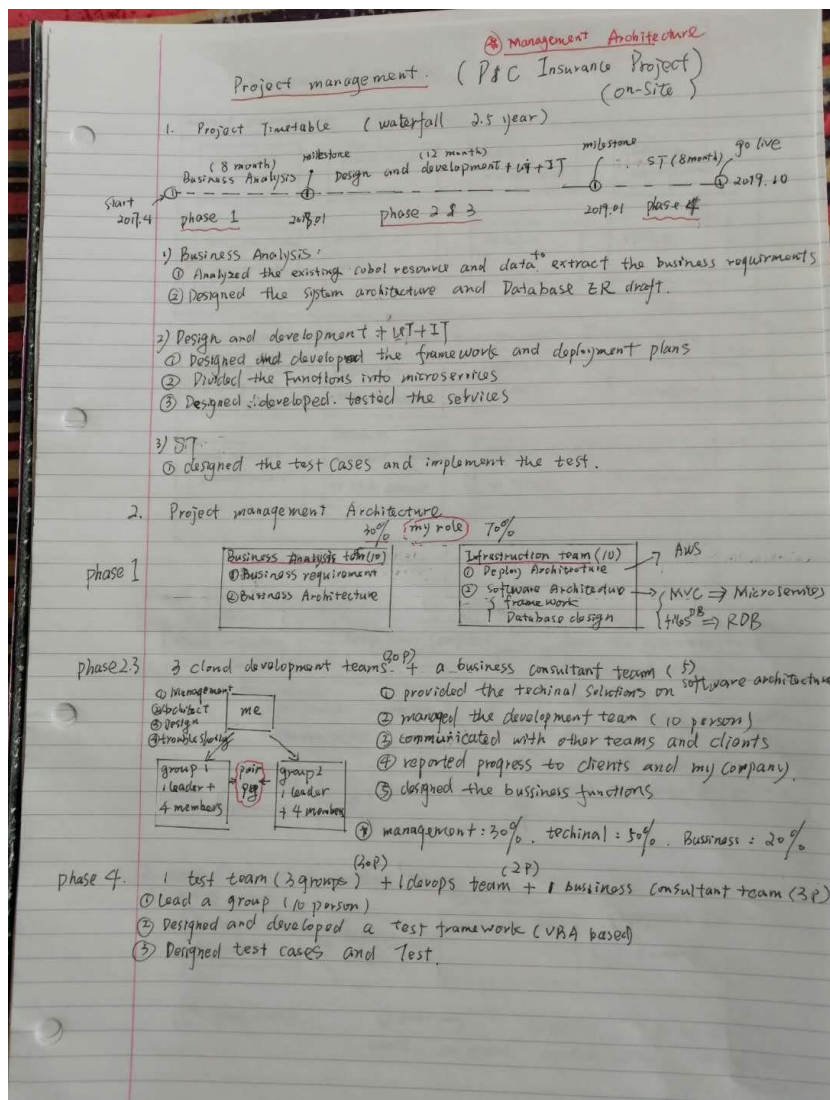 ※ Management Architecture
Project management. (P&C Insurance Project)
(on-site)
1. Project Timetable (waterfall 2.5 year)
(8 month) milestone (12 month) milestone go live
Business Analysis Design and development + UT + IT ST (8 month)
start ① 2019.10
2017.4 phase 1 2018.01 phase 2 & 3 2019.01 phase 4
1) Business Analysis:
① Analyzed the existing cobol resource and data to extract the business requirments
② Designed the system architecture and Database ER draft.
2) Design and development + UT + IT
① Designed and developed the framework and deployment plans
② Divided the Functions into microservices
③ Designed. developed. tested the services
3) ST
① designed the test cases and implement the test.
2. Project management Architecture
30% my role 70%
phase 1
Business Analysis team (10)
① Business requirement
② Business Architecture
Infrastruction team (10)
① Deploy Architecture → AWS
② Software Architecture → MVC ⇒ Microservices
framework
Database design
files DB ⇒ RDB
phase 2.3 3 cloud development teams (30P) + a business consultant team (5)
① Management
② Architect
③ Design
④ troubleshooting
me
group 1
1 leader +
4 members
pair
group 2
1 leader
+ 4 members
① provided the techinal solutions on software architecture
② managed the development team (10 person)
③ communicated with other teams and clients
④ reported progress to clients and my company.
⑤ designed the bussiness functions
※ management: 30%. techinal: 50%. Bussiness: 20%
(30P) (2P)
phase 4. 1 test team (3 groups) + 1 devops team + 1 bussiness consultant team (3P)
① Lead a group (10 person)
② Designed and developed a test framework (VBA based)
③ Designed test cases and Test.